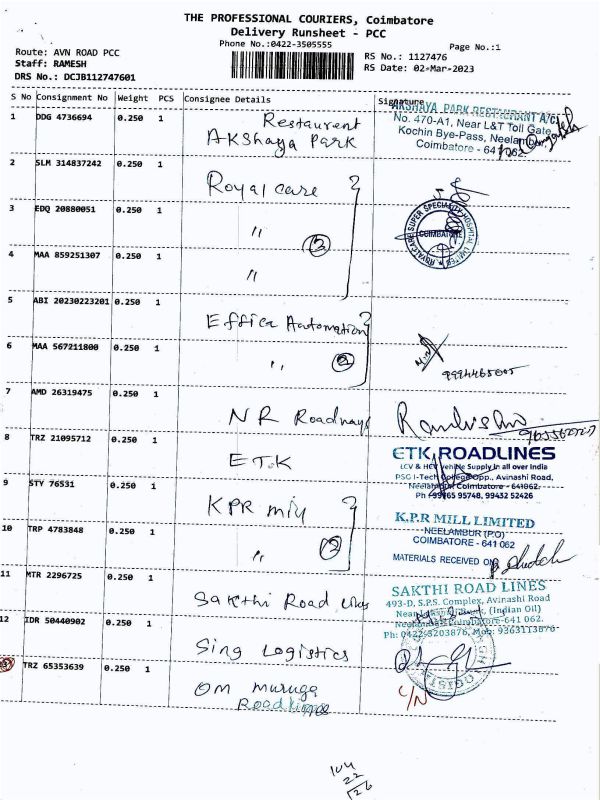 THE PROFESSIONAL COURIERS, Coimbatore
Delivery Runsheet - PCC
Phone No.:0422-3505555
Page No.:1
Route: AVN ROAD PCC
Staff: RAMESH
DRS No.: DCJB112747601
RS No.: 1127476
RS Date: 02-Mar-2023
S No Consignment No Weight PCS Consignee Details Signature
1 DDG 4736694 0.250 1 Restaurent
Akshaya Park
AKSHAYA PARK RESTAURANT A/C
No. 470-A1, Near L&T Toll Gate
Kochin Bye-Pass, Neelambur
Coimbatore - 641 062.
2 SLM 314837242 0.250 1 Royal care
3 EDQ 20880051 0.250 1 "
3
ROYALCARE SUPER SPECIALITY HOSPITAL LIMITED
COIMBATORE
4 MAA 859251307 0.250 1 "
5 ABI 20230223201 0.250 1 Effica Automation
6 MAA 567211800 0.250 1 " 2
7 AMD 26319475 0.250 1 NR Roadways
8 TRZ 21095712 0.250 1 ETK
ETK ROADLINES
LCV & HCV vehicle Supply in all over India
PSG I-Tech College Opp., Avinashi Road,
Neelambur, Coimbatore - 641062.
Ph : 99265 95748, 99432 52426
9 STY 76531 0.250 1 KPR mill
K.P.R MILL LIMITED
NEELAMBUR (P.O)
COIMBATORE - 641 062
MATERIALS RECEIVED ON
10 TRP 4783848 0.250 1 " 2
11 MTR 2296725 0.250 1 Sakthi Road lines
SAKTHI ROAD LINES
493-D, S.P.S. Complex, Avinashi Road
(Indian Oil)
Neelambur, Coimbatore-641 062.
Ph: 0422-3203876, Mob: 9363113876
12 IDR 50440902 0.250 1 Sing Logistics
13 TRZ 65353639 0.250 1 Om muruga
Roadlines
C/N
104
22
126